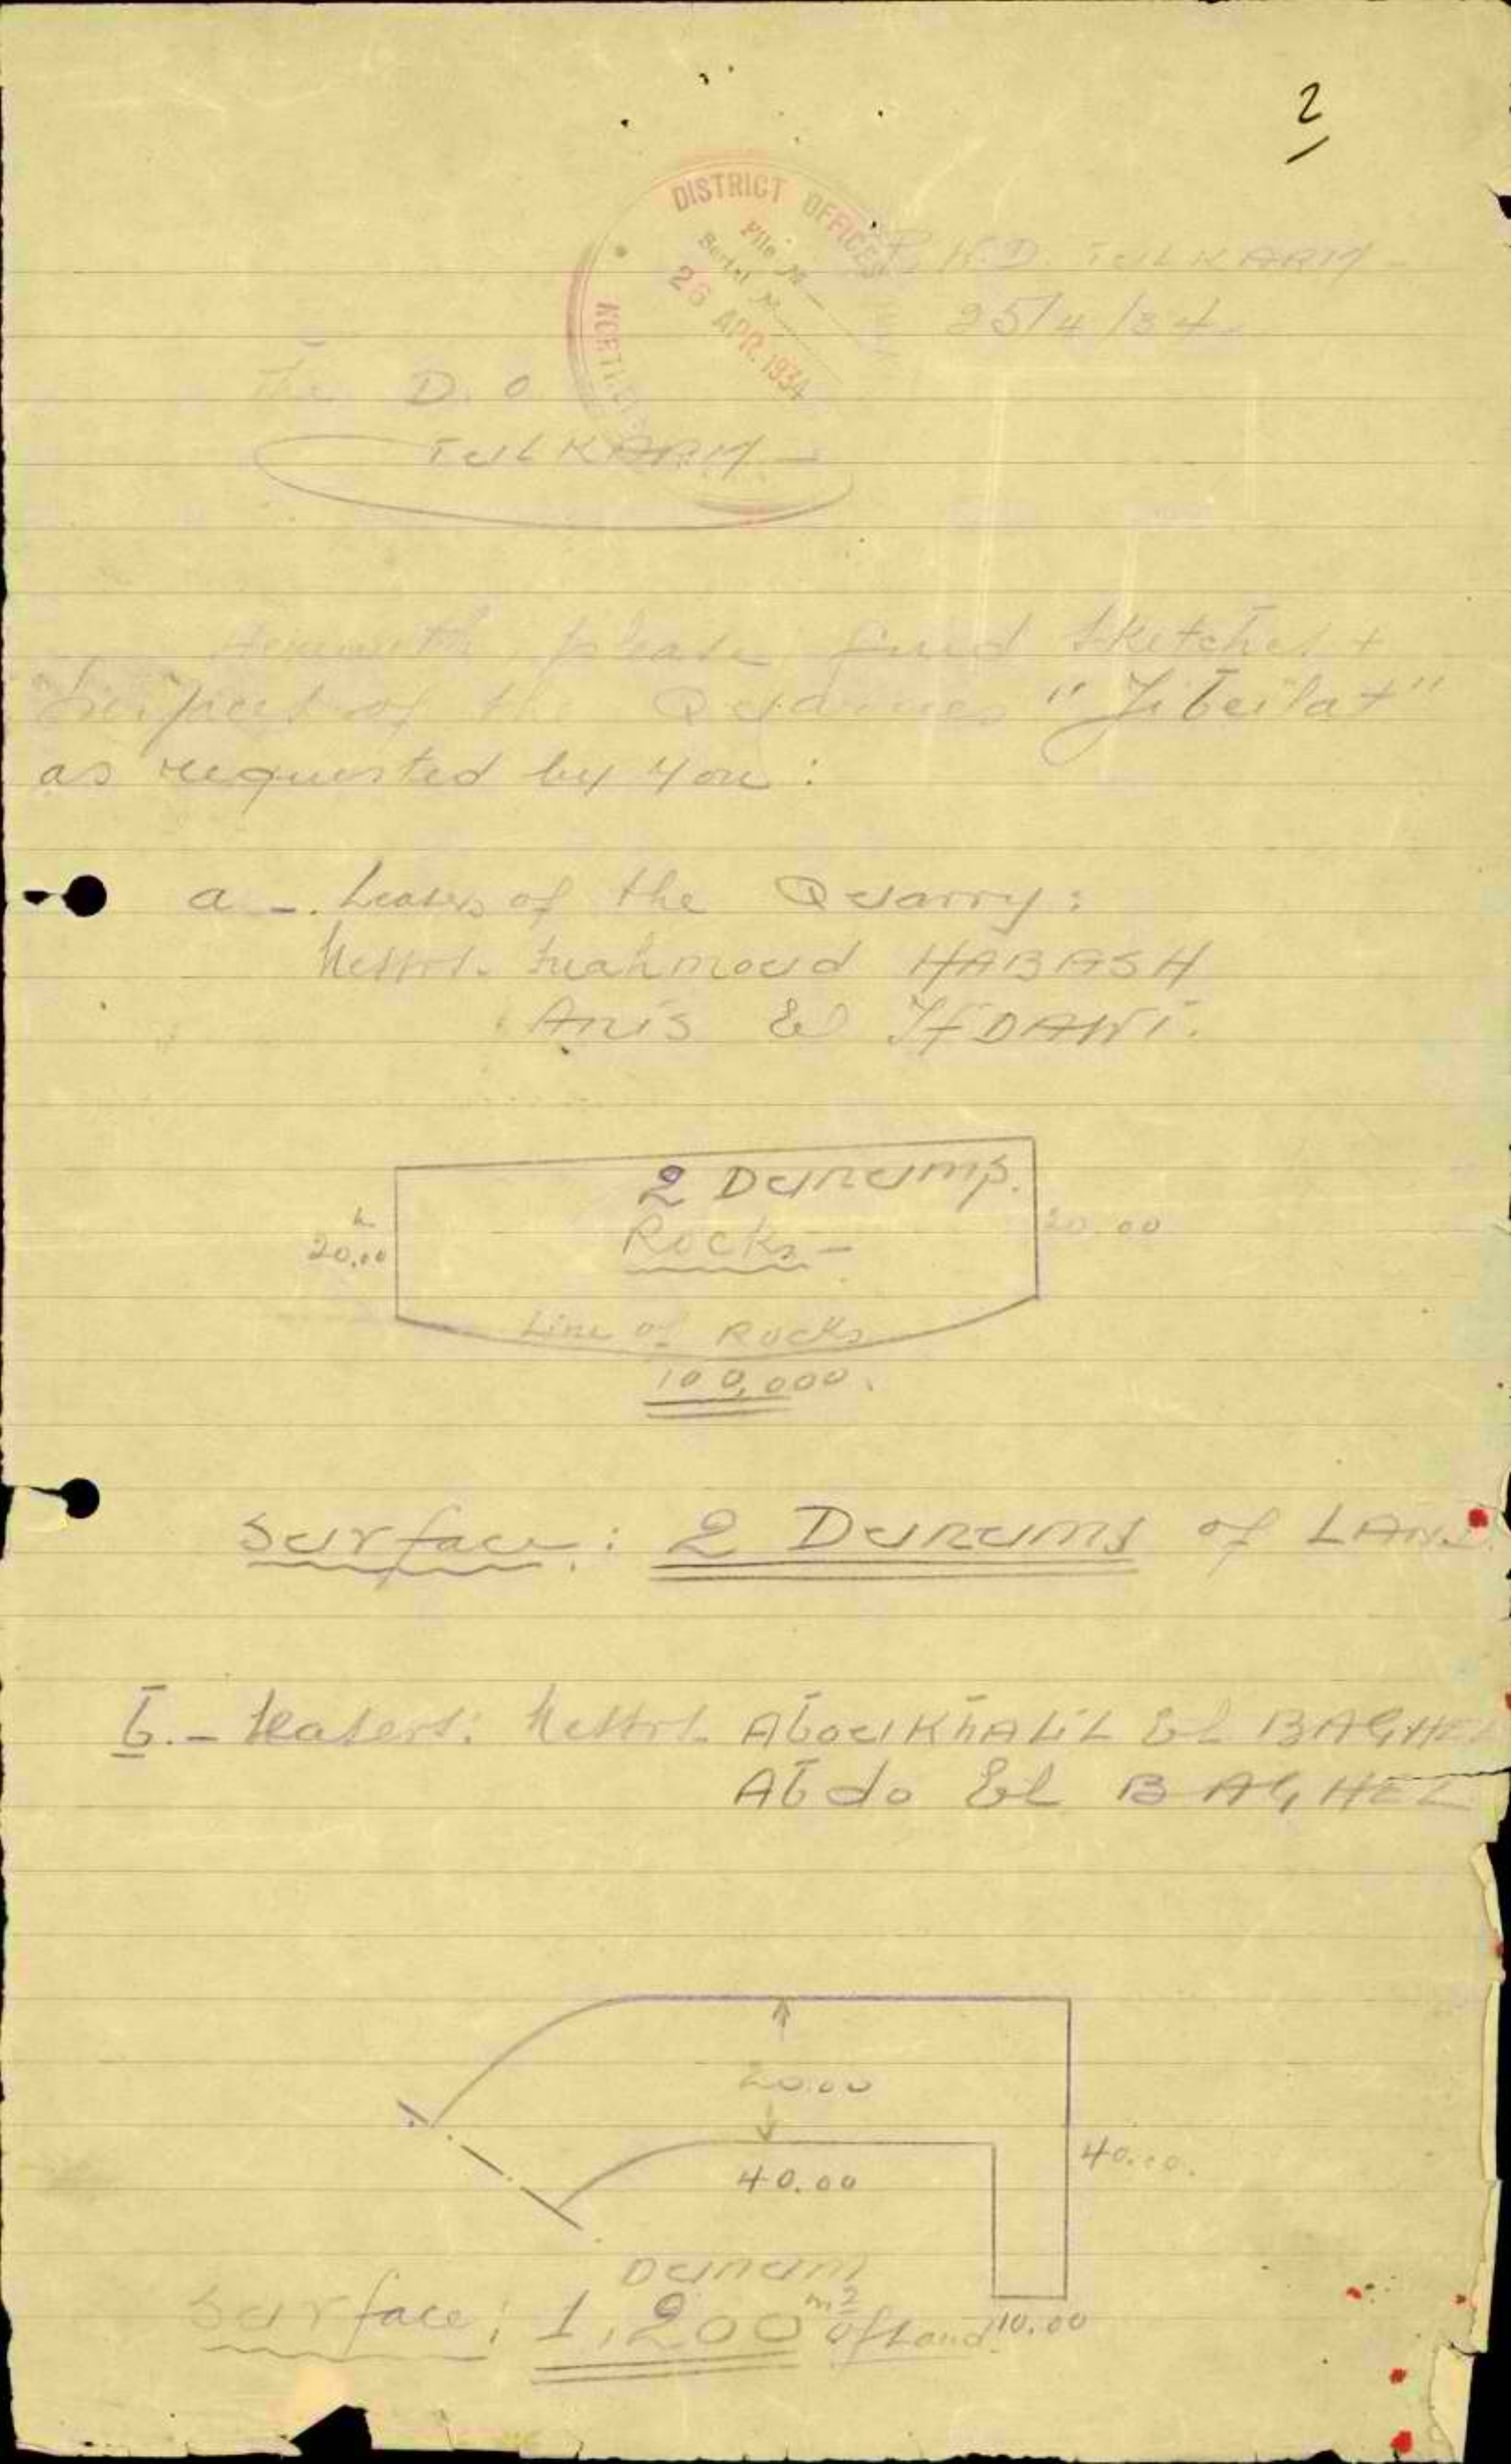 2
DISTRICT OFFICES
File No
Serial No
26 APR. 1934
P.W.D. TULKARM
25/4/34
The D.O
TULKARM
Herewith please find Sketches +
Surfaces of the Quarries "Jibeilat"
as requested by you:
a - Leasers of the Quarry:
Messrs. Mahmoud HABASH
Anis El
2 Dunums.
Rocks -
20.00
20.00
Line of Rocks
100,000.
Surface: 2 Dunums of LAND.
b. - Leasers: Messrs. Abou KhALiL El BAGHEL
Abdo El BAGHEL
20.00
40.00
40.00.
10.00
Dunum
Surface: 1,200 m2 of Land.